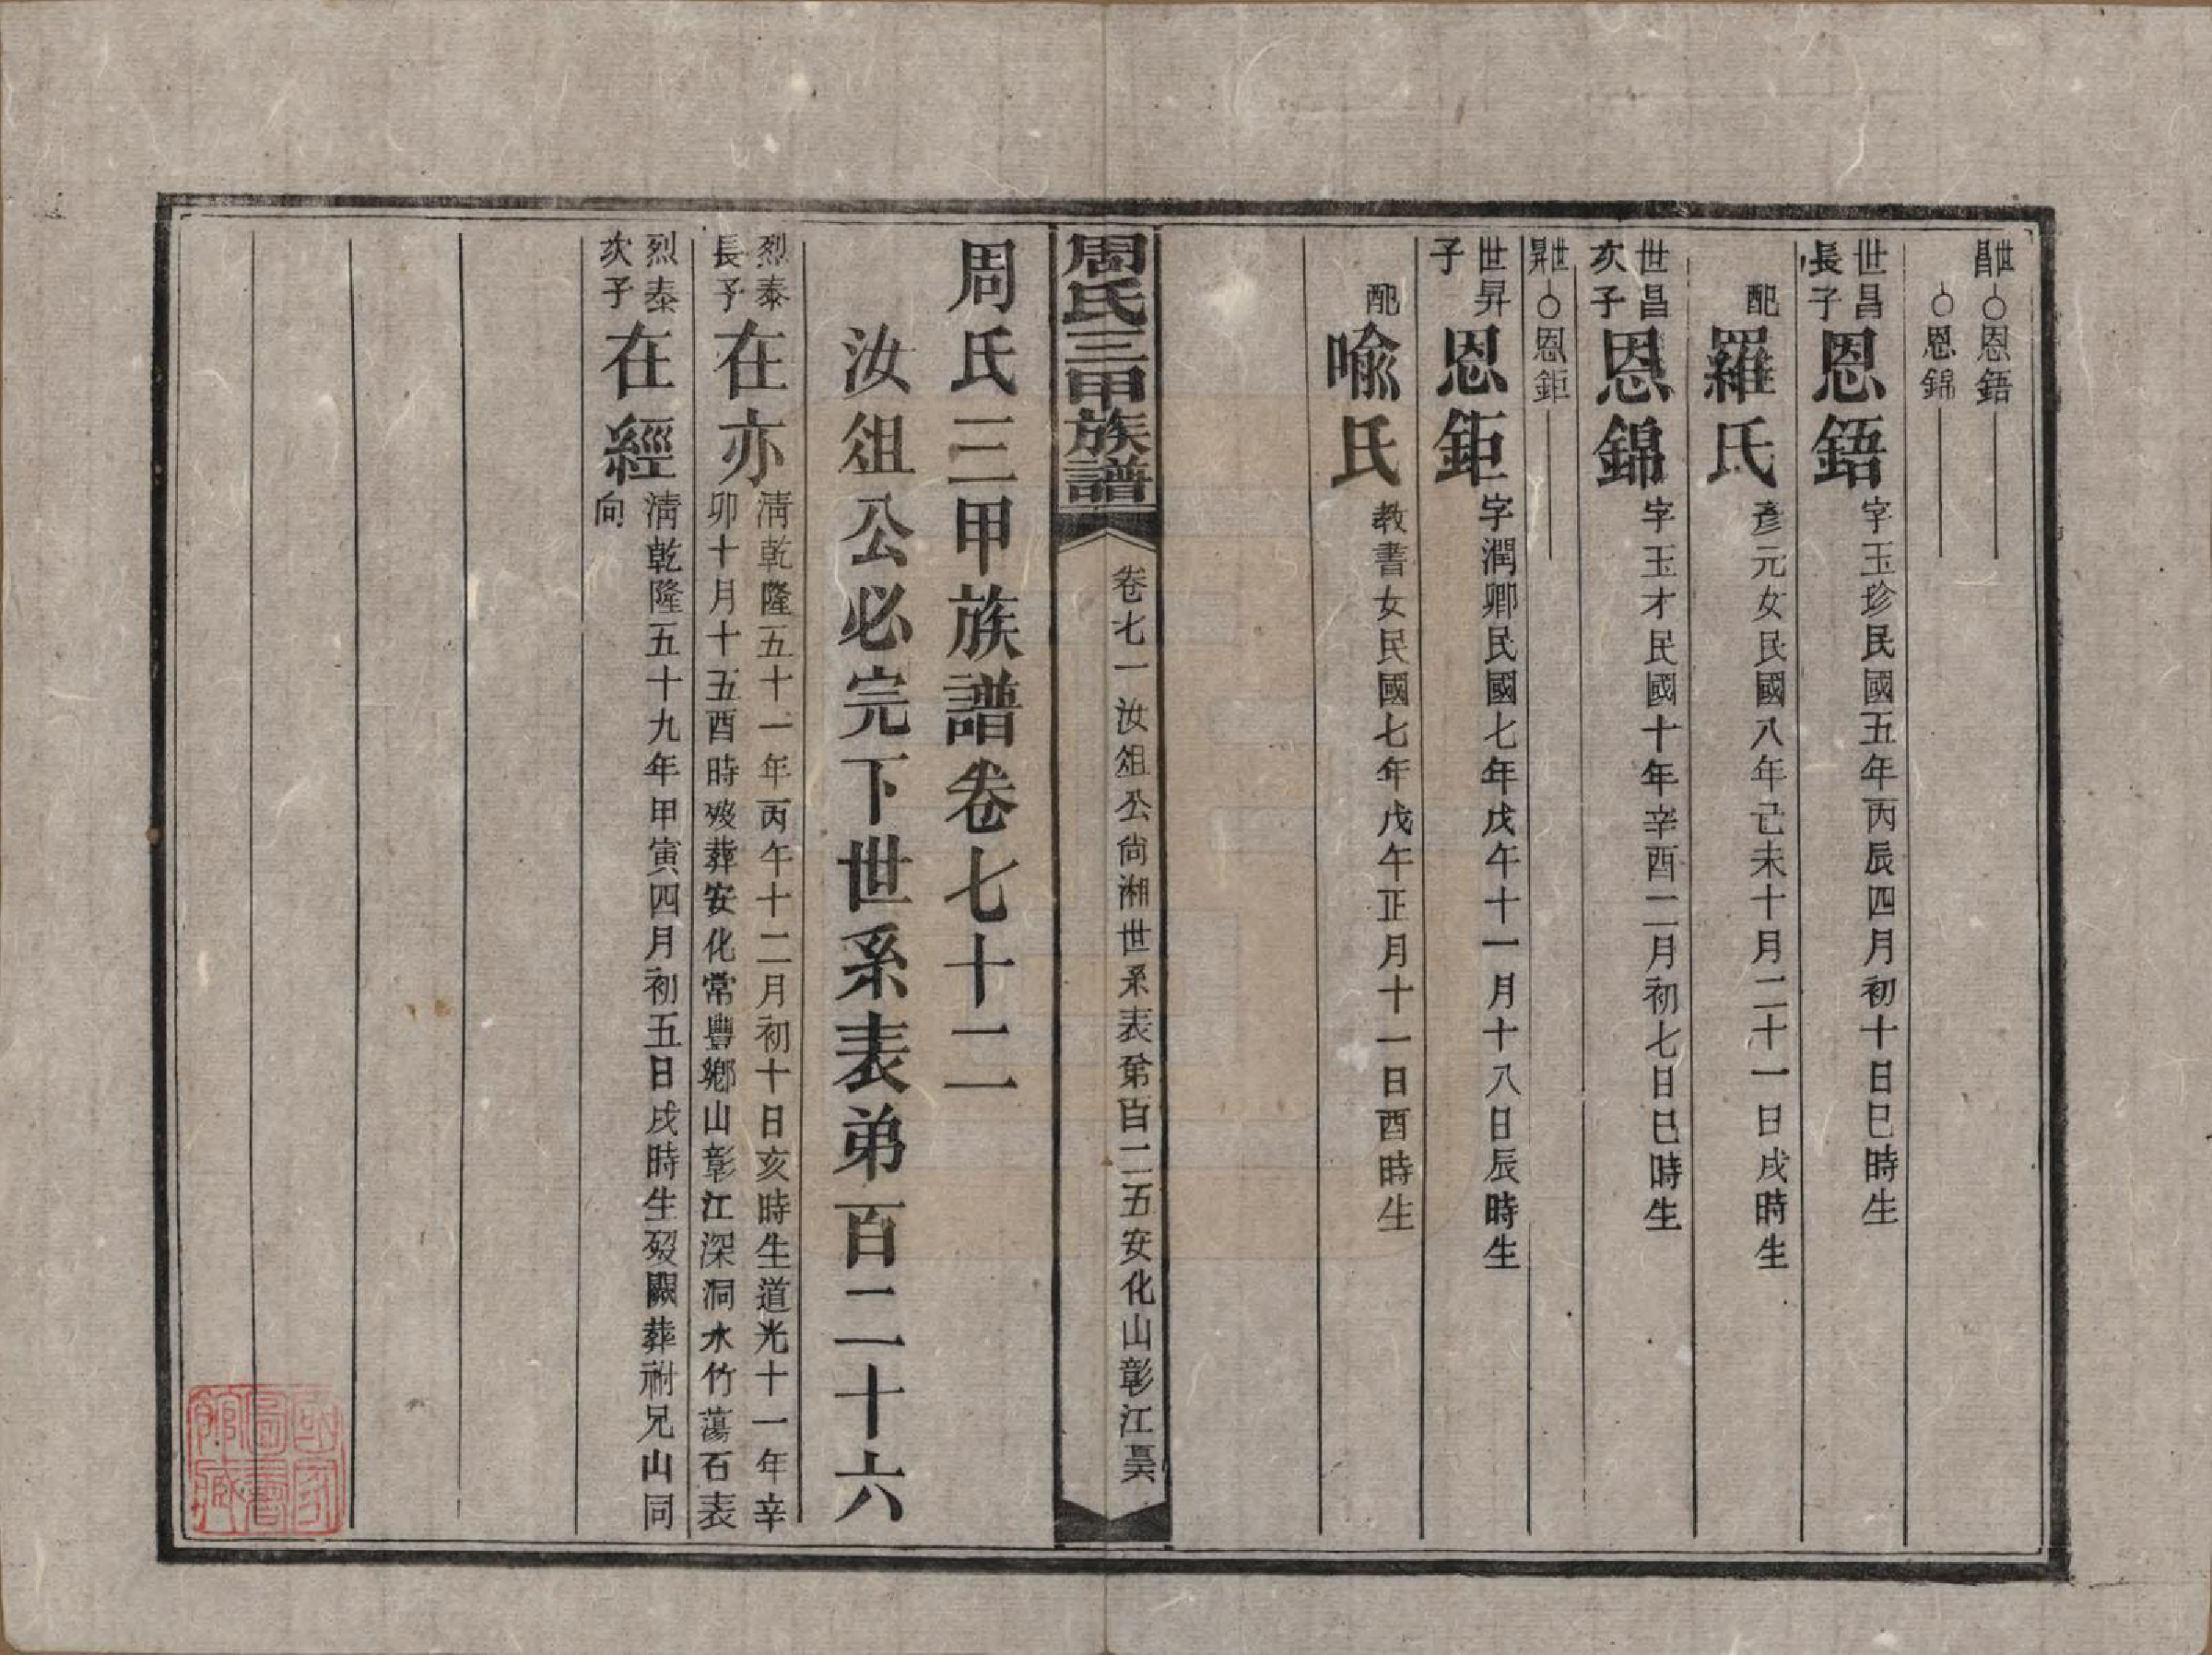 世昌○恩鋙
○恩錦
世昌長子 恩鋙 字玉珍民國五年丙辰四月初十日巳時生
配 羅氏 彥元女民國八年己未十月二十一日戌時生
世昌次子 恩錦 字玉才民國十年辛酉二月初七日巳時生
世昇○恩鉅
世昇子 恩鉅 字潤卿民國七年戊午十一月十八日辰時生
配 喩氏 教書女民國七年戊午正月十一日酉時生
周氏三甲族譜
卷七一汝俎公尙湘世系表第百二五安化山彰江昊
周氏三甲族譜卷七十二
汝俎公必完下世系表弟百二十六
烈泰長子 在亦 淸乾隆五十一年丙午十二月初十日亥時生道光十一年辛
卯十月十五酉時歿葬安化常豐鄕山彰江深洞水竹蕩石表
烈泰次子 在經 淸乾隆五十九年甲寅四月初五日戌時生歿闕葬祔兄山同
向
國家圖書館藏